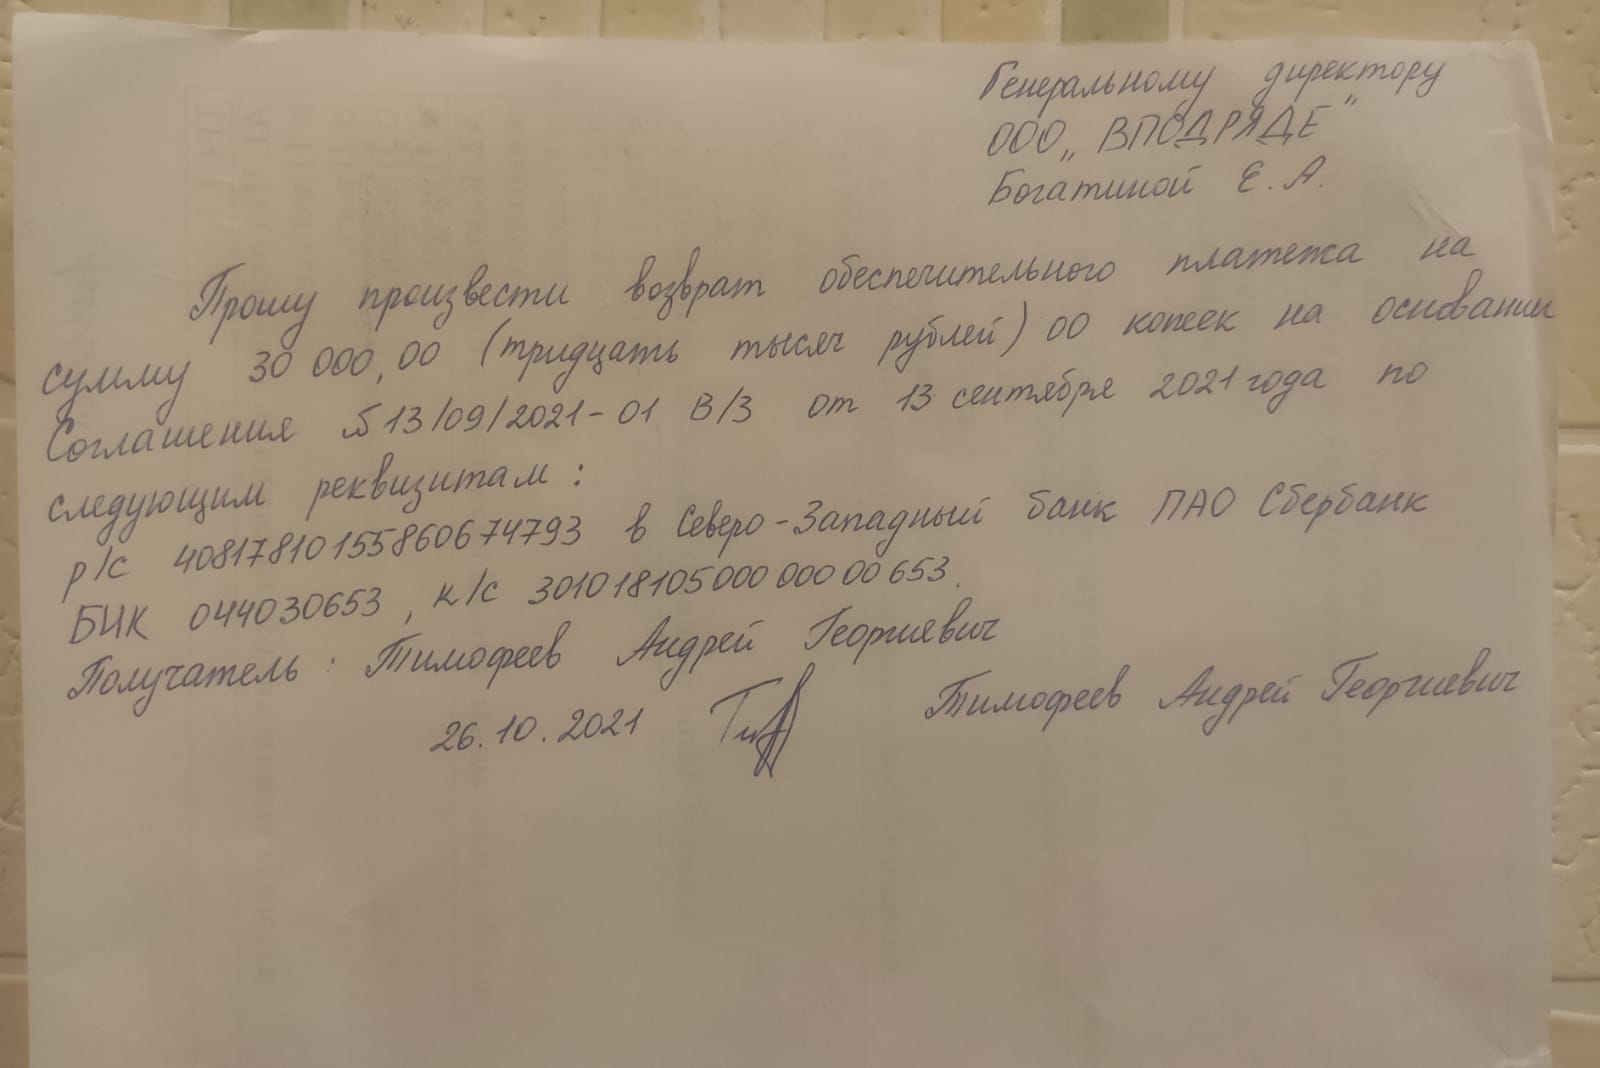 Генеральному директору
ООО „ВПОДРЯДЕ"
Богатиной Е. А.
Прошу произвести возврат обеспечительного платежа на
сумму 30 000,00 (тридцать тысяч рублей) 00 копеек на основании
Соглашения №13/09/2021-01 В/З от 13 сентября 2021 года по
следующим реквизитам:
р/с 40817810155860674793 в Северо-Западный банк ПАО Сбербанк
БИК 044030653, к/с 30101810500000000653.
Получатель: Тимофеев Андрей Георгиевич
26.10.2021 Тимофеев Андрей Георгиевич